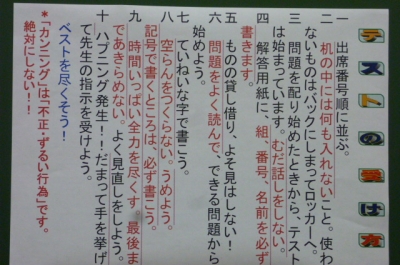 テストの受け方
一 出席番号順に並ぶ。
二 机の中には何も入れないこと。使わ
ないものはバックにしまってロッカーへ。
三 問題を配り始めたときから、テスト
は始まっています。むだ話しをしない。
四 解答用紙に、組、番号、名前を必ず
書きます。
五 ものの貸し借り、よそ見はしない！
六 問題をよく読んで、できる問題から
始めよう。
七 ていねいな字で書こう。
八 空らんをつくらない。うめよう。
記号で書くところは、必ず書こう。
九 時間いっぱい全力を尽くす。最後ま
であきらめない。よく見直しをしよう。
十 ハプニング発生！！だまって手を挙げ
て先生の指示を受けよう。
ベストを尽くそう！
＊「カンニング」は「不正・ずるい行為」です。
絶対にしない！！